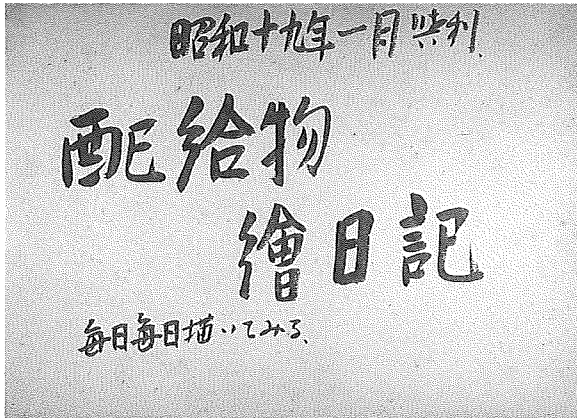 昭和十九年一月
配給物
繪日記
毎日毎日描いてみる、